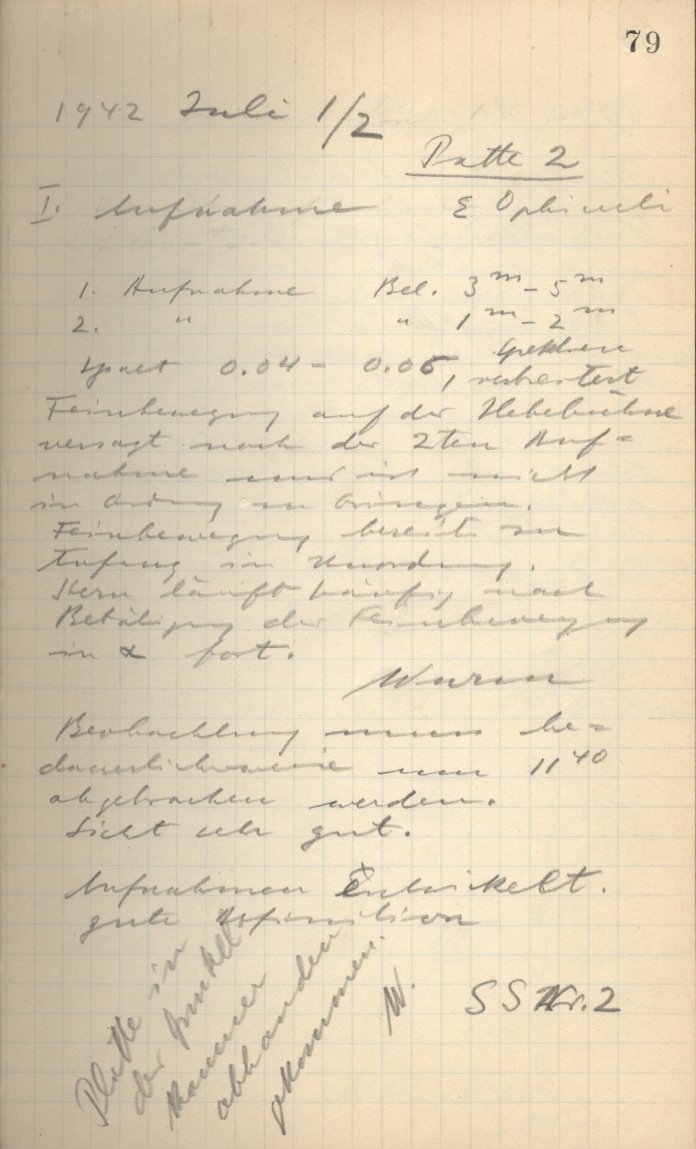 79
1942 Juli 1/2
Platte 2
I. Aufnahme ε Ophiuchi
1. Aufnahme Bel. 3ᵐ – 5ᵐ
2. " " 1ᵐ – 2ᵐ
Spalt 0.04 – 0.05, Spektren
verbreitert
Feinbewegung auf der Hebebühne
versagt nach der 2ten Auf-
nahme und ist nicht
in Ordnung zu bringen.
Feinbewegung bereits zu
Anfang in Unordnung.
Stern läuft häufig nach
Betätigung der Feinbewegung
in α fort.
Wurm
Beobachtung muss be-
dauerlicherweise um 11⁴⁰
abgebrochen werden.
Sicht sehr gut.
Aufnahmen Entwickelt.
gute Definition
Platte in
der Dunkel
kammer
abhanden
gekommen.
W.
SS Nr. 2